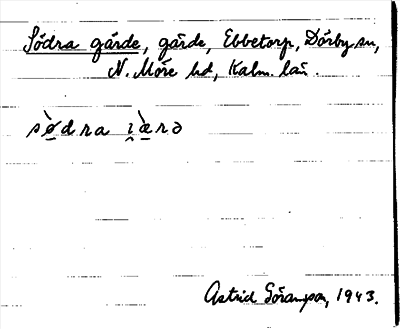 Södra gärde, gärde, Ebbetorp, Dörby sn,
N. Möre hd, Kalm. län.
sø̀dra i̯æ̀rə
Astrid Göransson, 1943.